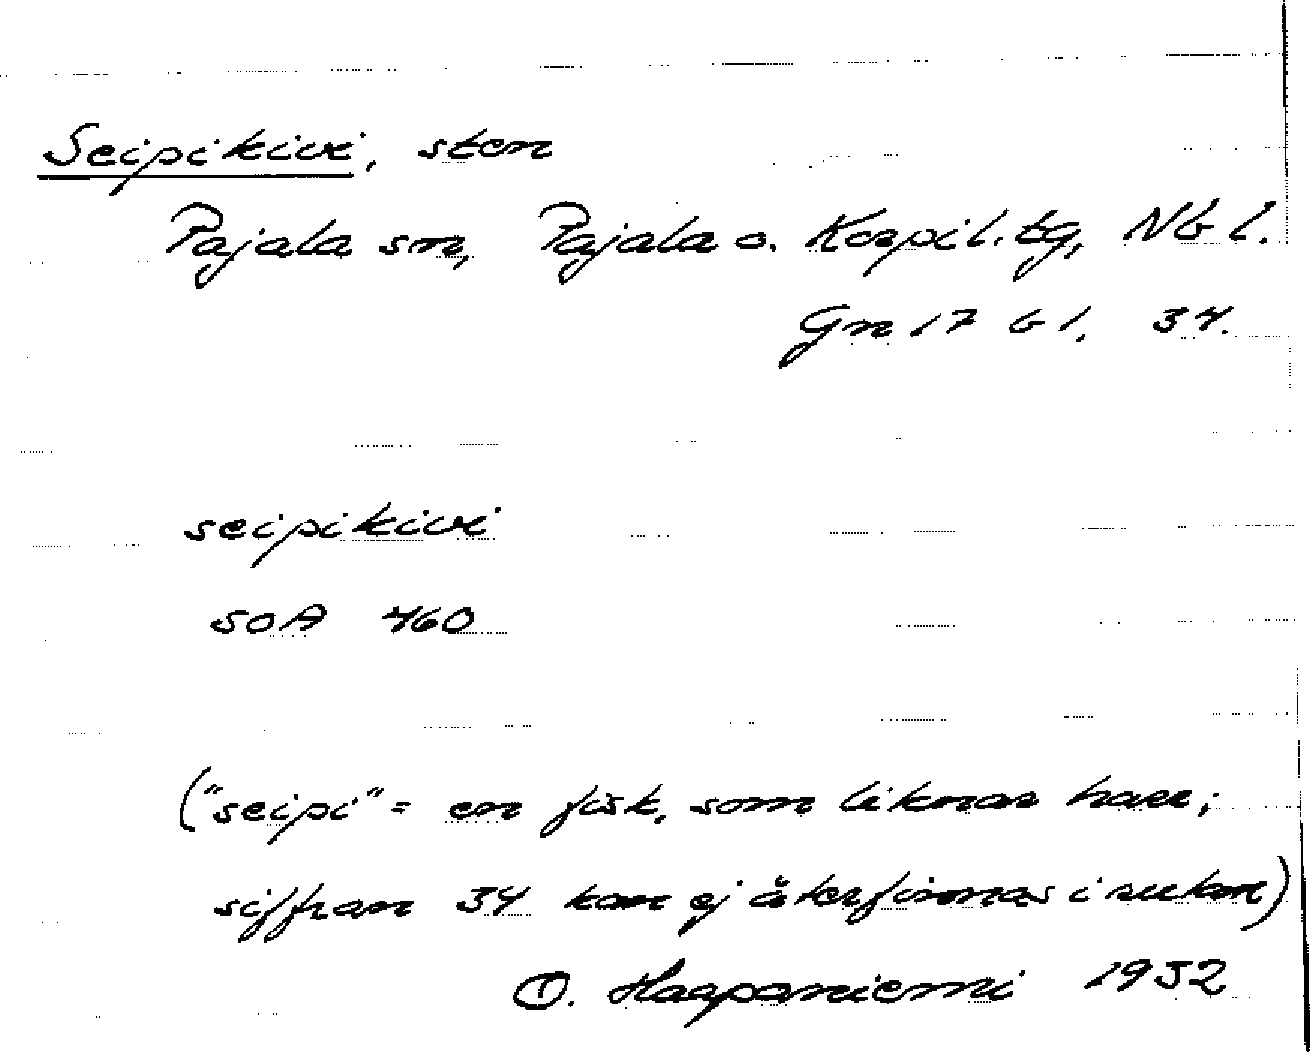 Seipikivi, sten
Pajala sn, Pajala o. Korpil. tg, Nb l.
Gn 17 b 1, 34.
seipikivi
SOA 460
("seipi" = en fisk, som liknar harr;
siffran 34 kan ej återfinnas i rutan)
O. Haapaniemi 1952